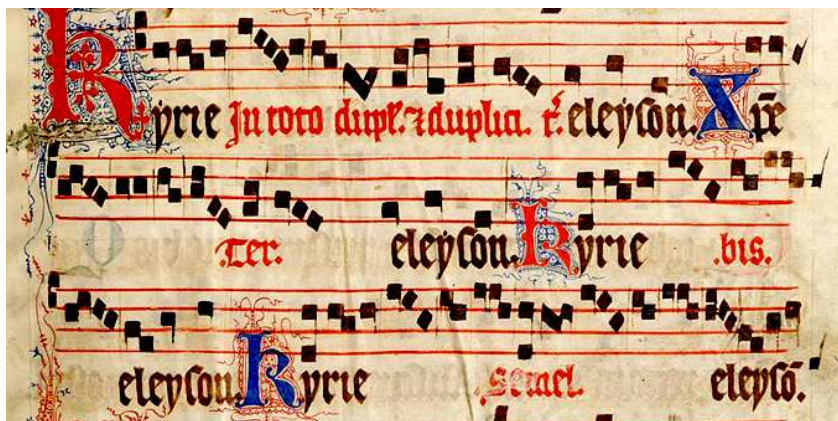 Kyrie In toto dupl'. ⁊ duplici. t'. eleyson. Xp̄e
.Ter. eleyson. Kyrie .bis.
eleyson. Kyrie .Semel. eleysō.